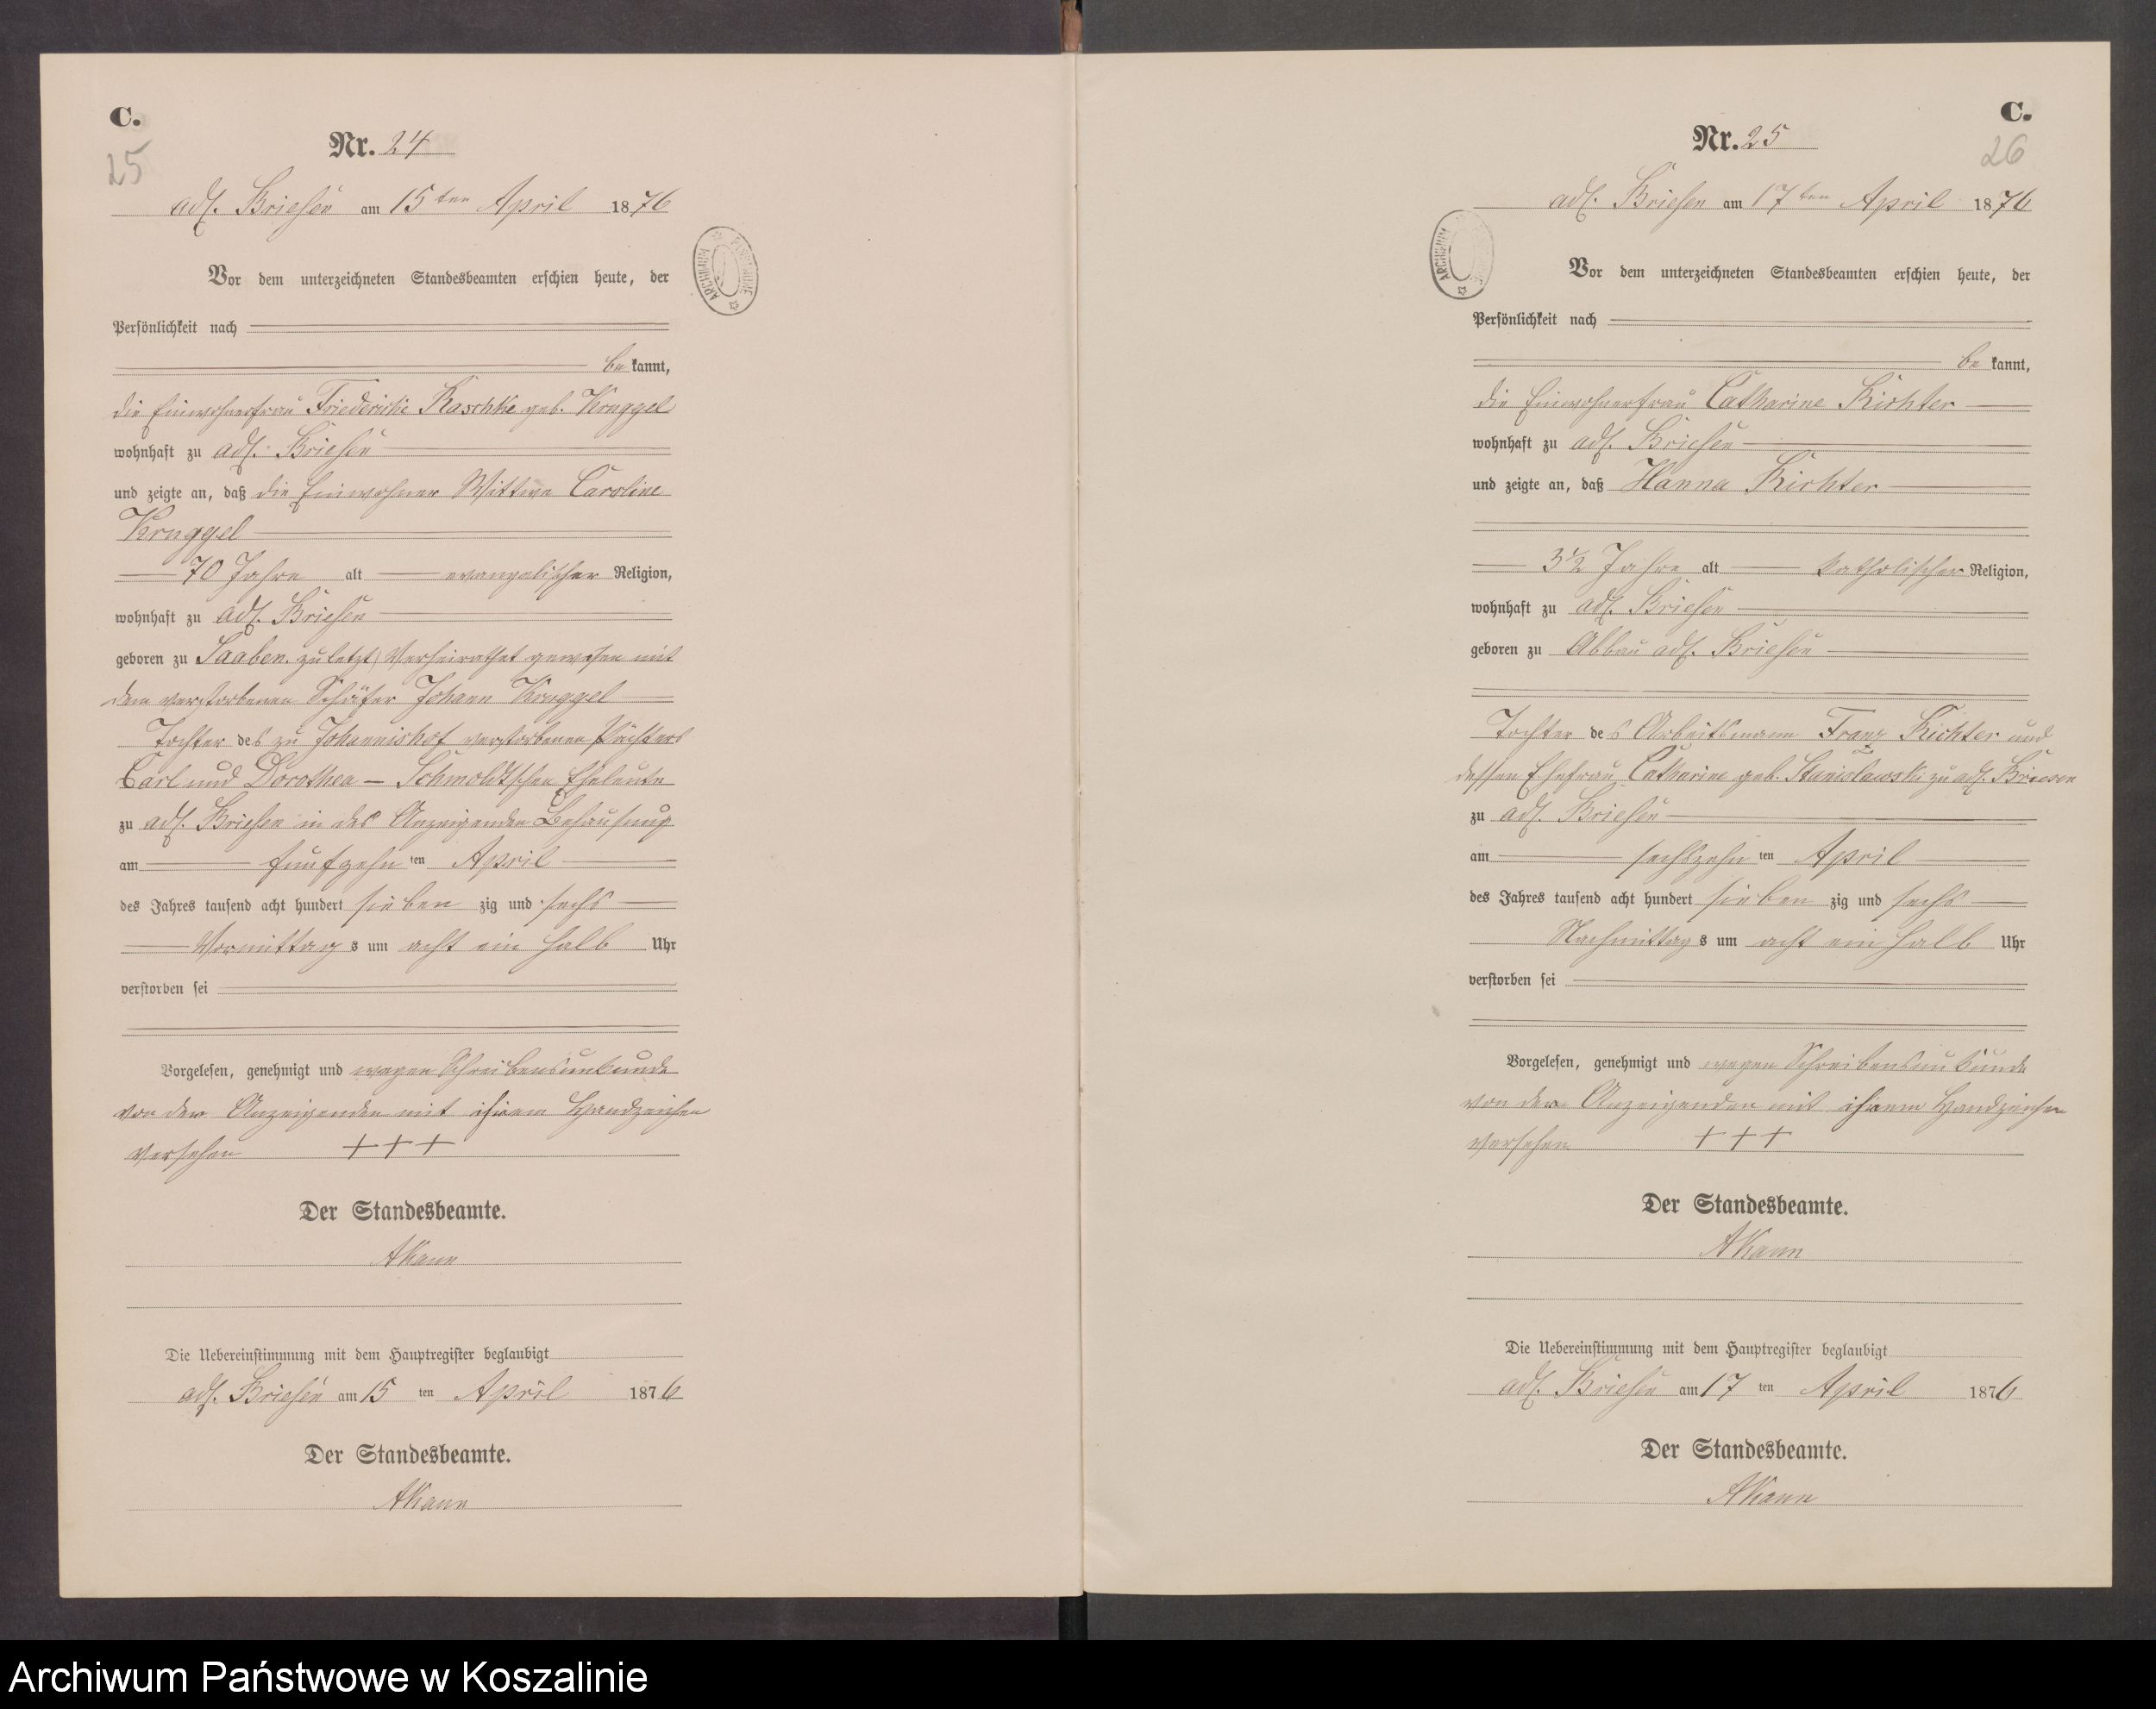 C.
25
Nr. 24
adl. Briesen am 15ten April 1876
Vor dem unterzeichneten Standesbeamten erschien heute, der
Persönlichkeit nach
be kannt,
die Einwohnerfrau Friederike Raschke geb. Kruggel
wohnhaft zu adl. Briesen
und zeigte an, daß die Einwohner Wittwe Caroline
Kruggel
70 Jahre alt evangelischer Religion,
wohnhaft zu adl. Briesen
geboren zu Saaben. zuletzt verheirathet gewesen mit
dem verstorbenen Schäfer Johann Kruggel
Tochter des zu Johannishof verstorbenen Pächters
Carl und Dorothea – Schmoldtschen Eheleute
zu adl. Briesen in des Anzeigenden Behausung
am fünfzehn ten April
des Jahres tausend acht hundert sieben zig und sechs
Vormittag s um acht ein halb Uhr
verstorben sei
Vorgelesen, genehmigt und wegen Schreibensunkunde
von der Anzeigenden mit ihrem Handzeichen
versehen +++
Der Standesbeamte.
AKann
Die Uebereinstimmung mit dem Hauptregister beglaubigt
adl. Briesen am 15 ten April 1876
Der Standesbeamte.
AKann
ARCHIWUM
C.
26
Nr. 25
adl. Briesen am 17ten April 1876
Vor dem unterzeichneten Standesbeamten erschien heute, der
Persönlichkeit nach
be kannt,
die Einwohnerfrau Catharine Richter
wohnhaft zu adl. Briesen
und zeigte an, daß Hanna Richter
3½ Jahre alt katholischer Religion,
wohnhaft zu adl. Briesen
geboren zu Abbau adl. Briesen
Tochter des Arbeitsmann Franz Richter und
dessen Ehefrau Catharine geb. Stanislawski zu adl. Briesen
zu adl. Briesen
am sechszehn ten April
des Jahres tausend acht hundert sieben zig und sechs
Nachmittag s um acht ein halb Uhr
verstorben sei
Vorgelesen, genehmigt und wegen Schreibensunkunde
von der Anzeigenden mit ihrem Handzeichen
versehen +++
Der Standesbeamte.
AKann
Die Uebereinstimmung mit dem Hauptregister beglaubigt
adl. Briesen am 17 ten April 1876
Der Standesbeamte.
AKann
ARCHIWUM
Archiwum Państwowe w Koszalinie